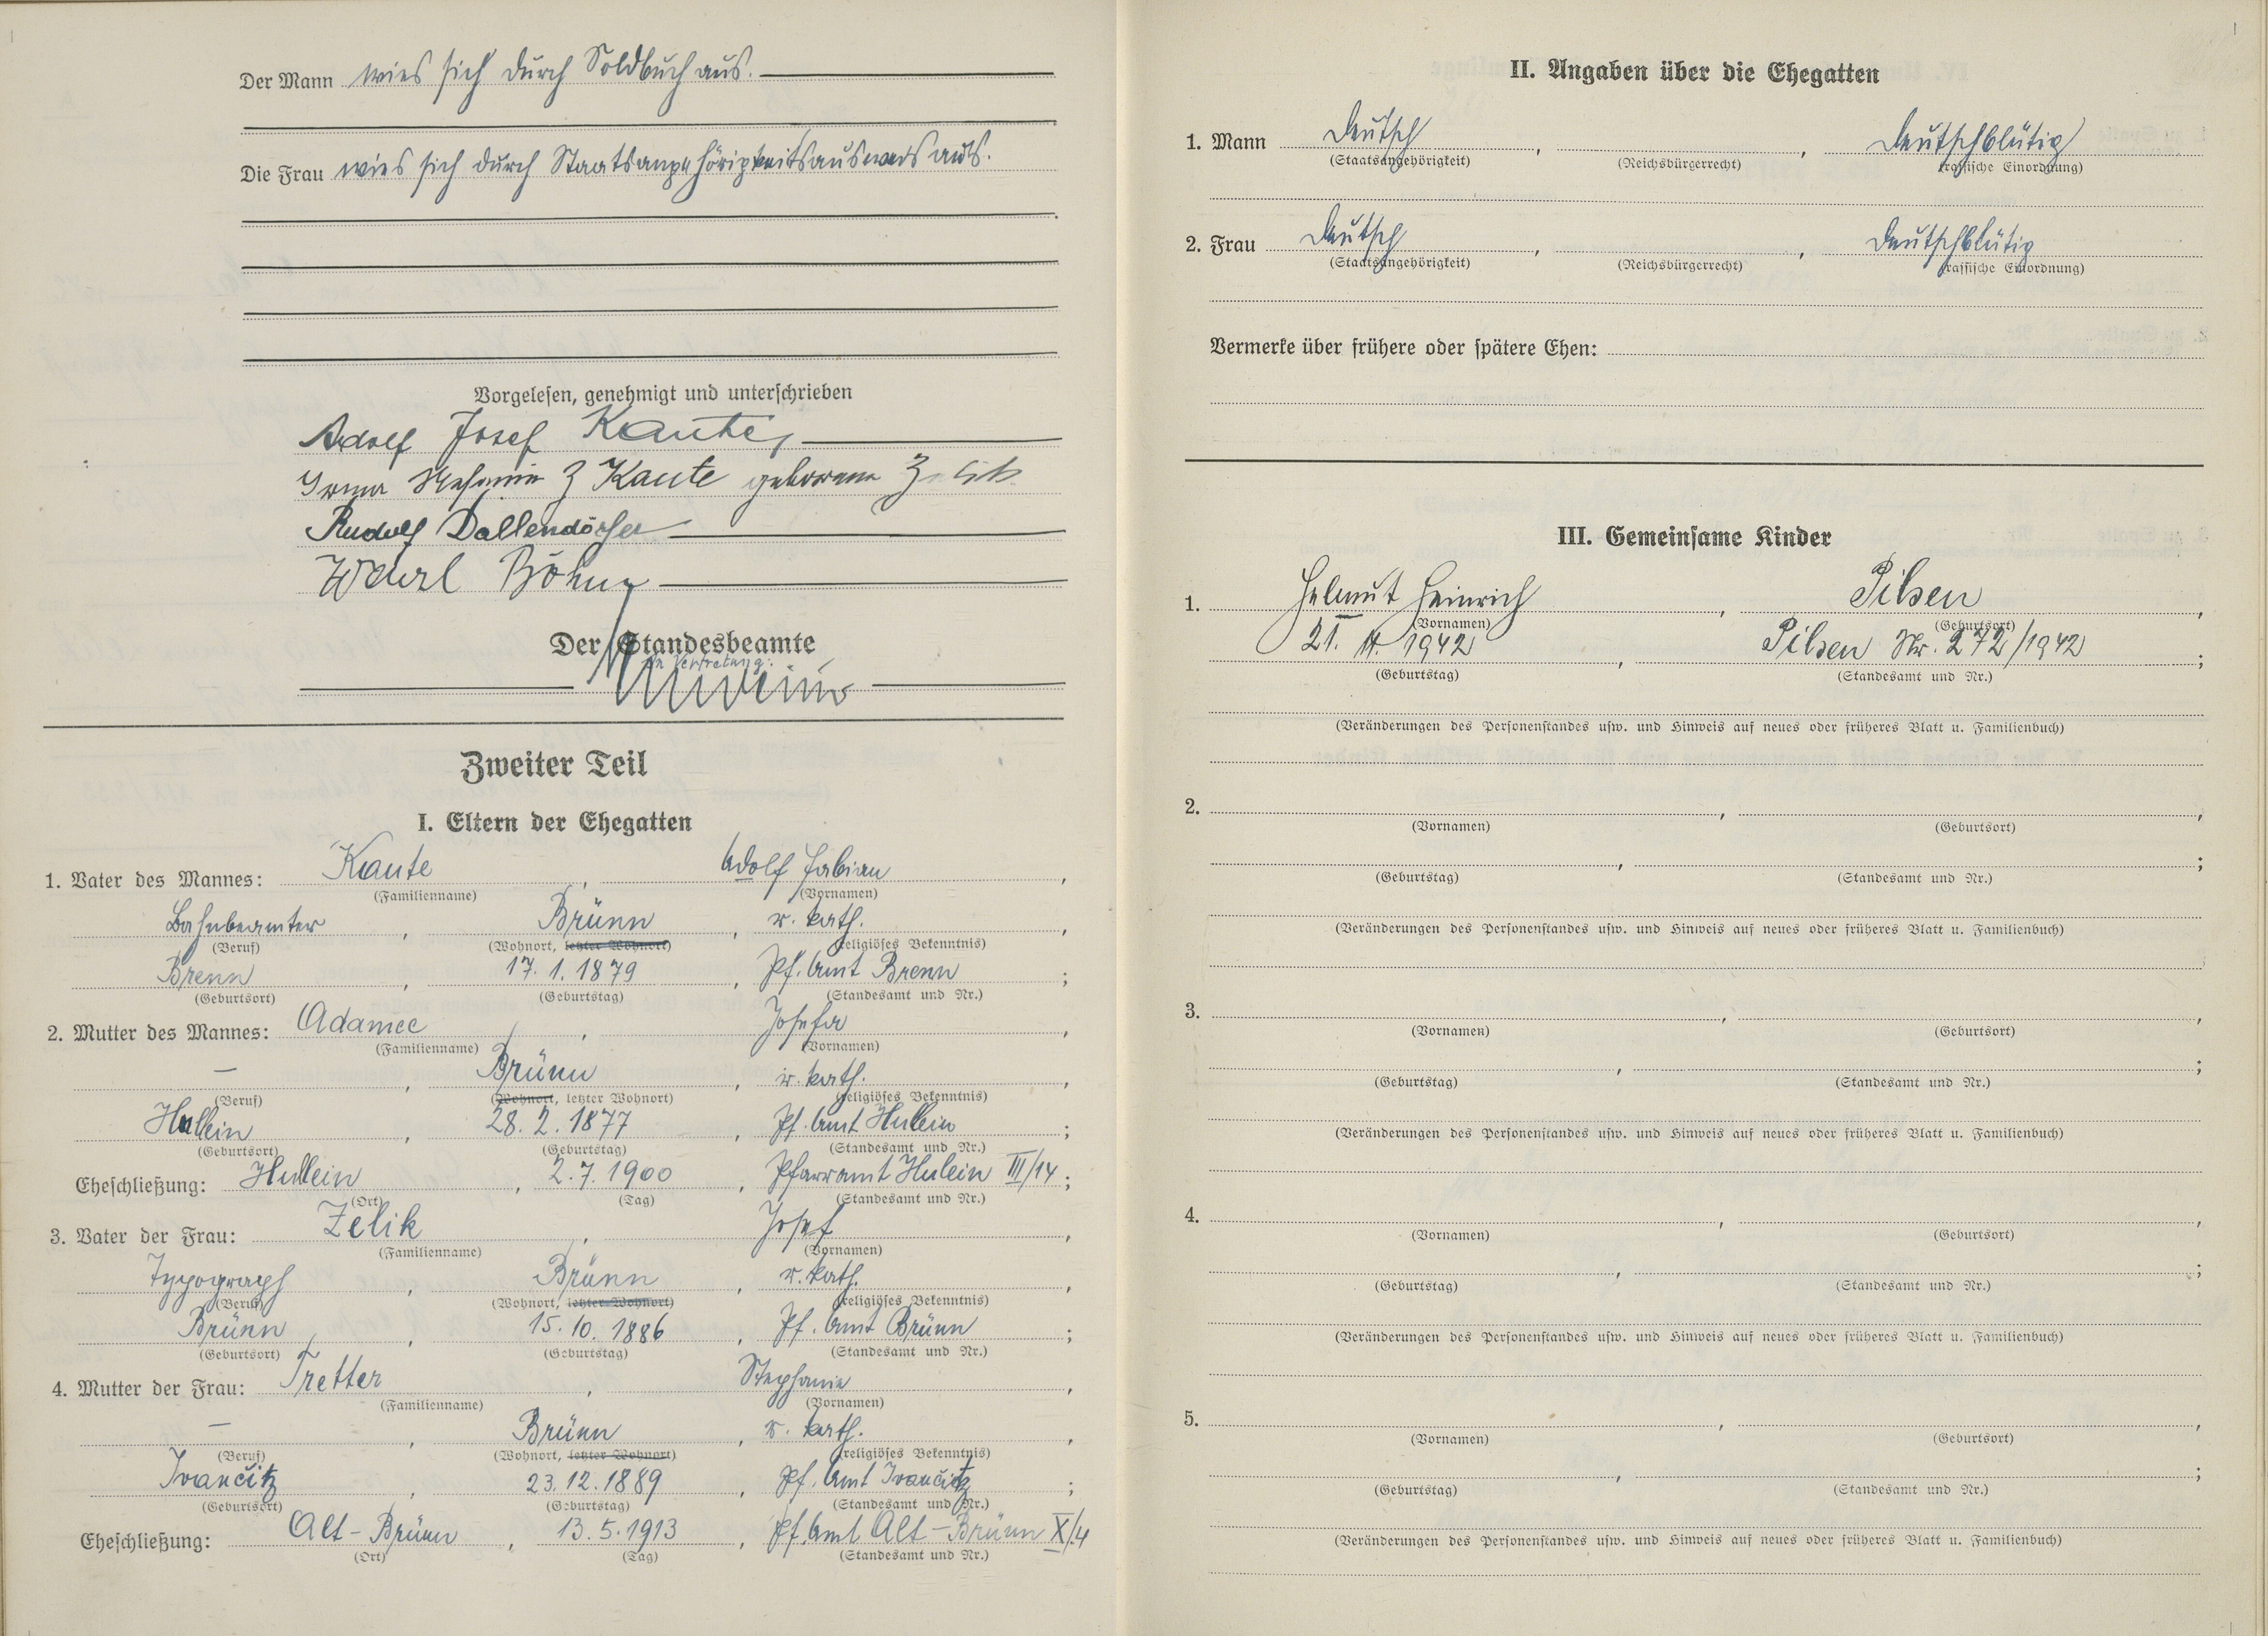 Der Mann wies sich durch Soldbuch aus.
Die Frau wies sich durch Staatsangehörigkeitsausweis aus.
Vorgelesen, genehmigt und unterschrieben
Adolf Josef Kaute
Irma Kaute geborene Zelik
Rudolf Dallendörfer
Böhm
Der Standesbeamte
In Vertretung:
Zweiter Teil
I. Eltern der Ehegatten
1. Vater des Mannes: Kaute, Adolf Fabian,
(Familienname) (Vornamen)
Bahnbeamter, Brünn, r. kath.,
(Beruf) (Wohnort, letzter Wohnort) (religiöses Bekenntnis)
Brenn, 17. 1. 1879, Pf. Amt Brenn;
(Geburtsort) (Geburtstag) (Standesamt und Nr.)
2. Mutter des Mannes: Adamec, Josefa,
(Familienname) (Vornamen)
—, Brünn, r. kath.,
(Beruf) (Wohnort, letzter Wohnort) (religiöses Bekenntnis)
Hullein, 28. 2. 1877, Pf. Amt Hullein;
(Geburtsort) (Geburtstag) (Standesamt und Nr.)
Eheschließung: Hullein, 2. 7. 1900, Pfarramt Hulein III/14;
(Ort) (Tag) (Standesamt und Nr.)
3. Vater der Frau: Zelik, Josef,
(Familienname) (Vornamen)
Typograph, Brünn, r. kath.,
(Beruf) (Wohnort, letzter Wohnort) (religiöses Bekenntnis)
Brünn, 15. 10. 1886, Pf. Amt Brünn;
(Geburtsort) (Geburtstag) (Standesamt und Nr.)
4. Mutter der Frau: Tretter, Stephanie,
(Familienname) (Vornamen)
—, Brünn, r. kath.,
(Beruf) (Wohnort, letzter Wohnort) (religiöses Bekenntnis)
Ivančitz, 23. 12. 1889, Pf. Amt Ivančitz;
(Geburtsort) (Geburtstag) (Standesamt und Nr.)
Eheschließung: Alt-Brünn, 13. 5. 1913, Pf. Amt Alt-Brünn X/4
(Ort) (Tag) (Standesamt und Nr.)
II. Angaben über die Ehegatten
1. Mann Deutsch, , Deutschblütig
(Staatsangehörigkeit) (Reichsbürgerrecht) (rassische Einordnung)
2. Frau Deutsch, , Deutschblütig
(Staatsangehörigkeit) (Reichsbürgerrecht) (rassische Einordnung)
Vermerke über frühere oder spätere Ehen:
III. Gemeinsame Kinder
1. Helmut Heinrich, Pilsen,
(Vornamen) (Geburtsort)
21. 1942, Pilsen Nr. 272/1942;
(Geburtstag) (Standesamt und Nr.)
(Veränderungen des Personenstandes usw. und Hinweis auf neues oder früheres Blatt u. Familienbuch)
2. , ,
(Vornamen) (Geburtsort)
, ;
(Geburtstag) (Standesamt und Nr.)
(Veränderungen des Personenstandes usw. und Hinweis auf neues oder früheres Blatt u. Familienbuch)
3. , ,
(Vornamen) (Geburtsort)
, ;
(Geburtstag) (Standesamt und Nr.)
(Veränderungen des Personenstandes usw. und Hinweis auf neues oder früheres Blatt u. Familienbuch)
4. , ,
(Vornamen) (Geburtsort)
, ;
(Geburtstag) (Standesamt und Nr.)
(Veränderungen des Personenstandes usw. und Hinweis auf neues oder früheres Blatt u. Familienbuch)
5. , ,
(Vornamen) (Geburtsort)
, ;
(Geburtstag) (Standesamt und Nr.)
(Veränderungen des Personenstandes usw. und Hinweis auf neues oder früheres Blatt u. Familienbuch)